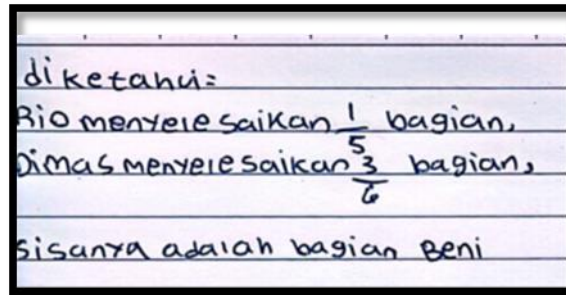 diketahui:
Rio menyelesaikan 1/5 bagian,
Dimas menyelesaikan 3/6 bagian,
sisanya adalah bagian Beni